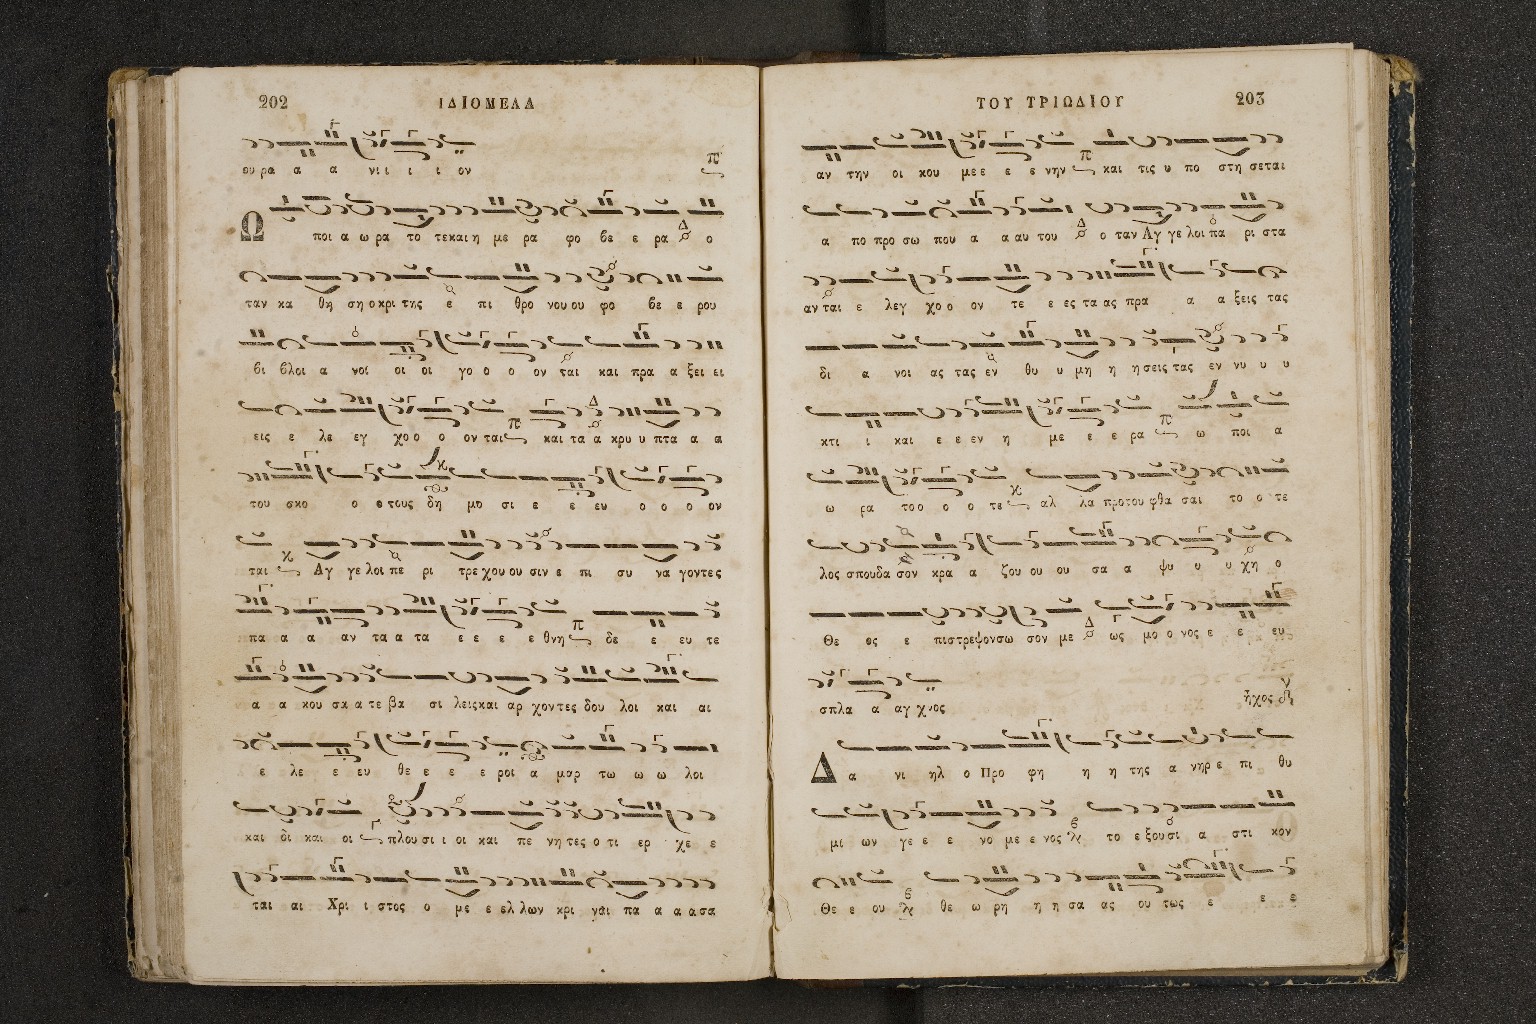 202 ΙΔΙΟΜΕΛΑ
ου ρα α α νι ι ι ι ον
Ω ποι α ω ρα το τε και η με ρα φο βε ε ρα ο
ταν κα θη ση ο κρι της ε πι θρο νου ου φο βε ε ρου
βι βλοι α νοι οι οι γο ο ο ον ται και πρα α ξει ει
εις ε λε εγ χο ο ο ον ται και τα α κρυ υ πτα α α
του σκο ο ο τους δη μο σι ε ε ευ ο ο ο ον
ται Αγ γε λοι πε ρι τρε χου ου σιν ε πι συ να γοντες
πα α α αν τα α τα ε ε ε ε θνη δε ε ευ τε
α α κου σα α τε βα σι λεις και αρ χον τες δου λοι και αι
ε λε ε ευ θε ε ε ε ροι α μαρ τω ω ω λοι
και δι και οι πλου σι ι οι και πε νη τες ο τι ερ χε ε
ται αι Χρι ι στος ο με ε ελ λων κρι ναι πα α α α σα
ΤΟΥ ΤΡΙΩΔΙΟΥ 203
αν την οι κου με ε ε ε νην και τις υ πο στη σεται
α πο προ σω που α α αυ του ο ταν Αγ γε λοι πα ρι στα
αν ται ε λεγ χο ο ον τε ε ες τα ας πρα α α ξεις τας
δι α νοι ας τας εν θυ υ μη η η σεις τας εν νυ υ υ
κτι ι και ε ε εν η με ε ε ρα ω ποι α
ω ρα το ο ο ο τε αλ λα προ του φθα σαι το ο τε
λος σπουδα σον κρα α ζου ου ου σα α ψυ υ υ χη ο
Θε ος ε πιστρεψον σω σον με ως μο ο νος ε ε ευ
σπλα α αγ χνος ἦχος
Δ α νι ηλ ο Προ φη η η της α νηρ ε πι θυ
μι ων γε ε ε νο με ε νος το ε ξου σι α στι κον
Θε ε ου θε ω ρη η η σα ας ου τως ε ε ε